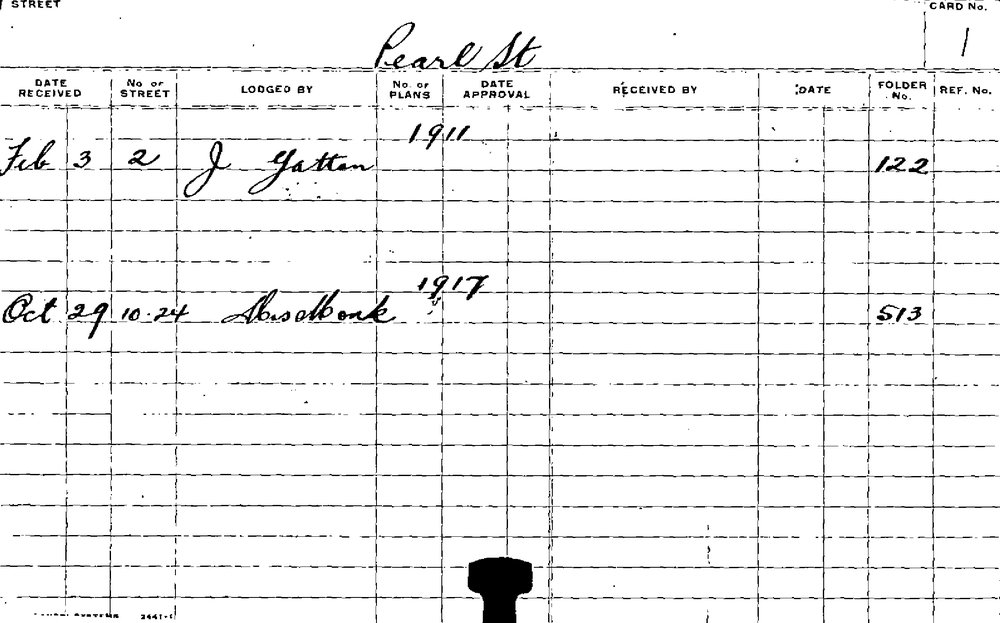 STREET
CARD No.
1
Pearl St
DATE RECEIVED No OF STREET LODGED BY No. OF PLANS DATE APPROVAL RECEIVED BY DATE FOLDER No. REF. No.
1911
Feb 3 2 J Yattan 122
1917
Oct 29 10-24 513
SYSTEMS 2441-